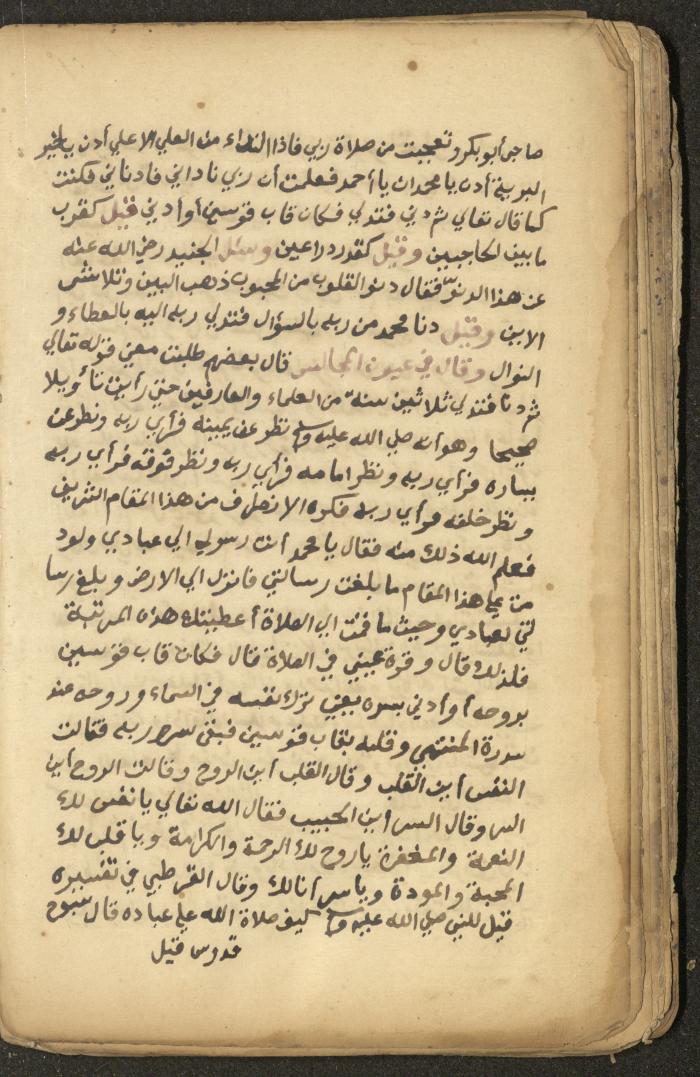 صاحبي أبو بكر وتعجبت من صلاة ربي فاذا النداء من العلي الاعلي أدن يا خير
البرية أدن يا محمد ادن يا أحمد فعلمت أن ربي ناداني فادناني فكنت
كما قال تعالي ثم دني فتدلي فكان قاب قوسين أو أدني قيل كقرب
ما بين الحاجبين وقيل كقدر دراعين وسئل الجنيد رضي الله عنه
عن هذا الدنو فقال دنو القلوب من المحبوب ذهب البين وتلاشي
الاين وقيل دنا محمد من ربه بالسؤال فتدلي ربه اليه بالعطاء و
النوال وقال في عيون المجالس قال بعضهم طلبت معني قوله تعالي
ثم دنا فتدلي ثلاثين سنة من العلماء والعارفين حتي رأيت تأويلا
صحيحا وهو أنه صلي الله عليه وسلم نظر عن يمينه فرأي ربه ونظر عن
يساره فرأي ربه ونظر امامه فرأي ربه ونظر فوقه فرأي ربه
ونظر خلفه فرأي ربه فكره الانصراف من هذا المقام الشريف
فعلم الله ذلك منه فقال يا محمد أنت رسولي الي عبادي ولو د
مت علي هذا المقام ما بلغت رسالتي فانزل الي الارض وبلغ رسا
لتي لعبادي وحيث ما قمت الي الصلاة أعطيتك هذه المرتبة
فلذلك قال وقرة عيني في الصلاة قال فكان قاب قوسين
بروحه أو أدني بسره يعني ترك نفسه في السماء وروحه عند
سدرة المنتهي وقلبه بقاب قوسين فبقي سره بربه فقالت
النفس أين القلب وقال القلب أين الروح وقالت الروح أين
السر وقال السر أين الحبيب فقال الله تعالي يا نفس لك
النعمة والمغفرة يا روح لك الرحمة والكرامة ويا قلب لك
المحبة والمودة ويا سر أنا لك وقال القرطبي في تفسيره
قيل للنبي صلي الله عليه وسلم كيف صلاة الله علي عباده قال سبوح
قدوس قيل